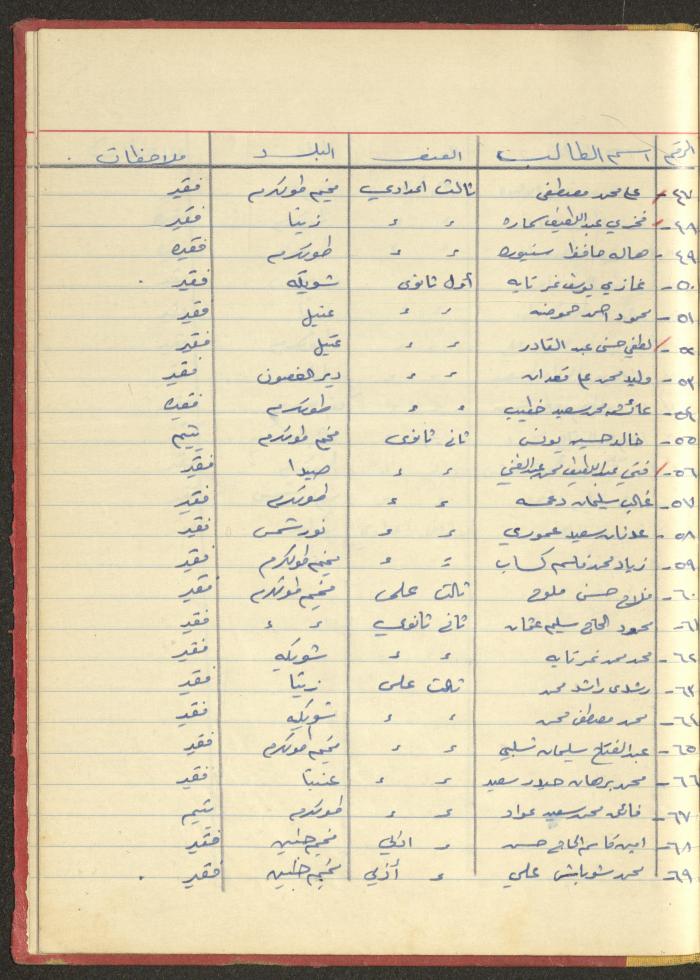 الرقم اسم الطالب الصف البلد ملاحظات
٤٧- علي محمد مصطفى ثالث اعدادي مخيم طولكرم فقير
٤٨- فخري عبد اللطيف سماره ء ء زيتا فقير
٤٩- هاله حافظ ء ء طولكرم فقيره
٥٠- غازي يوسف نمر تايه أول ثانوي شويكه فقير
٥١- محمود احمد ء ء عتيل فقير
٥٢- لطفي حسني عبد القادر ء ء عتيل فقير
٥٣- وليد محمد علي قعدان ء ء دير الغصون فقير
٥٤- عائشه محمد سعيد خطيب ء ء طولكرم فقيره
٥٥- خالد حسين يونس ثاني ثانوي مخيم طولكرم يتيم
٥٦- فتحي عبد اللطيف محمد عبد الغني ء ء صيدا فقير
٥٧- غالب سليمان دعمه ء ء طولكرم فقير
٥٨- عدنان سعيد عموري ء ء نور شمس فقير
٥٩- زياد محمد قاسم كساب ء ء مخيم طولكرم فقير
٦٠- فلاح حسن ملوح ثالث علمي مخيم طولكرم فقير
٦١- محمود الحاج سليم عثمان ثاني ثانوي ء ء فقير
٦٢- محمد نمر تايه ء ء شويكه فقير
٦٣- رشدي راشد محمد ثالث علمي زيتا فقير
٦٤- محمد مصطفى محمد ء ء شويكه فقير
٦٥- عبد الفتاح سليمان شلبي ء ء مخيم طولكرم فقير
٦٦- محمد برهان حيدر سعيد ء ء عنبتا فقير
٦٧- فائق محمد سعيد عواد ء ء طولكرم يتيم
٦٨- امين قاسم الحاج حسن ء ادبي مخيم جنين فقير
٦٩- محمد شوباش علي ء أدبي مخيم جنين فقير